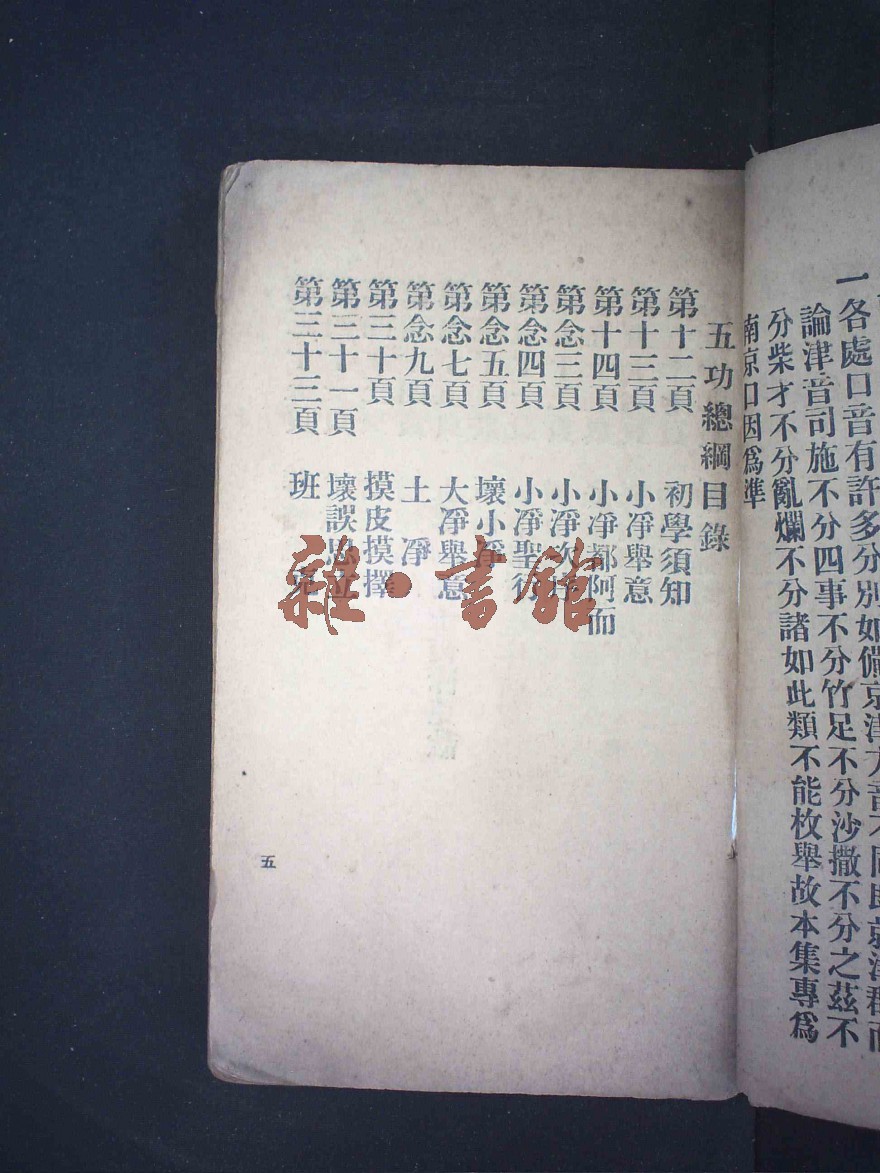 一各處口音有許多分別如
論津音司施不分四事不分竹足不分沙撒不分之茲不
分柴才不分亂爛不分諸如此類不能枚舉故本集專爲
南京口因爲準
五功總綱目錄
第十二頁 初學須知
第十三頁 小淨舉意
第十四頁 小淨都阿而
第念三頁 小淨次
第念四頁 小淨聖行
第念五頁 壞小淨
第念七頁 大淨舉意
第念九頁 土淨
第三十頁 摸皮摸擇
第三十一頁 壞誤思立
第三十三頁 班克
五
雜·書館